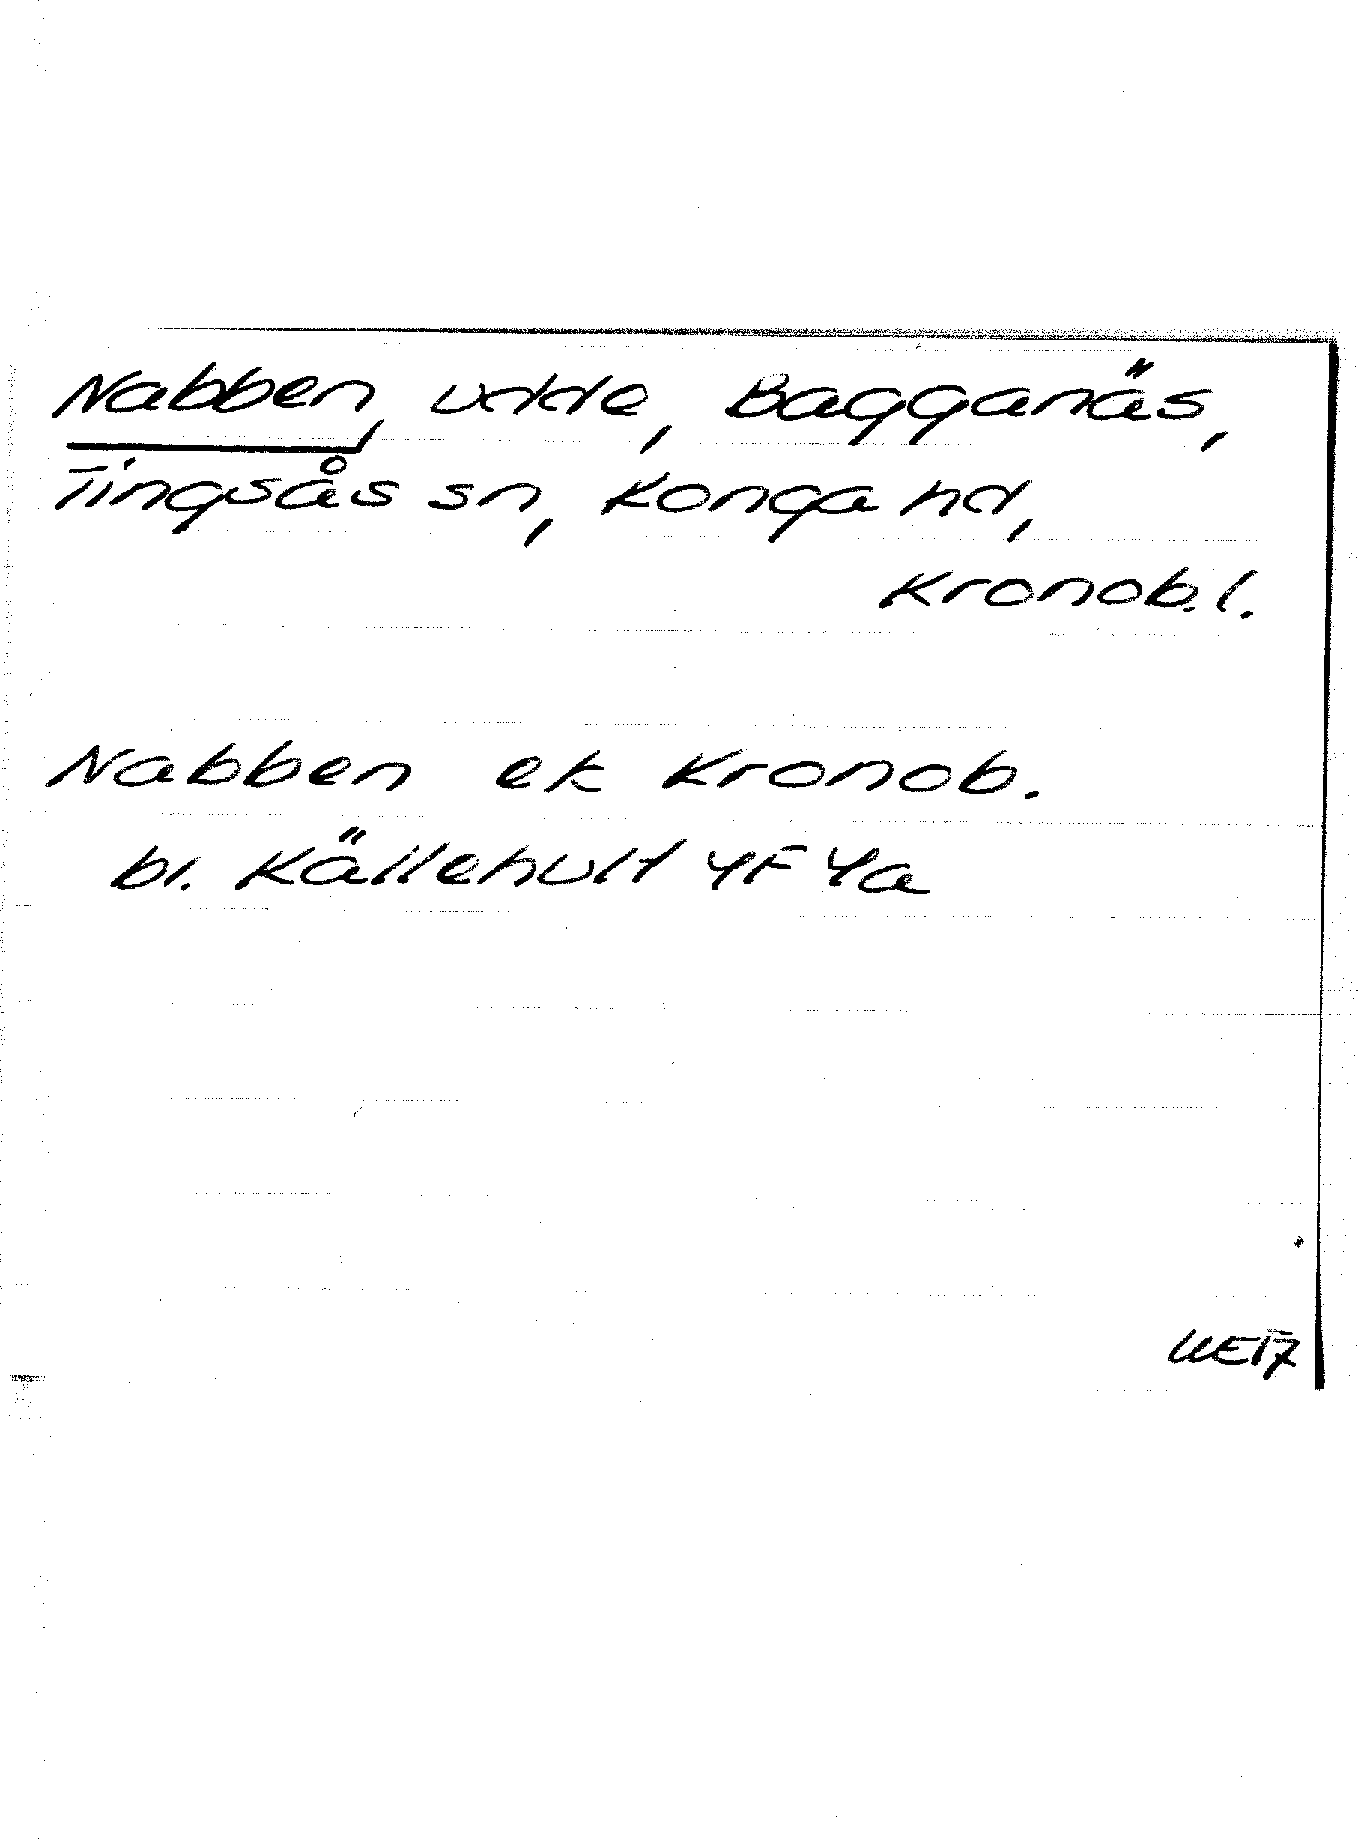 Nabben, udde, Bagganäs,
Tingsås sn, Konga hd,
Kronob. l.
Nabben ek Kronob.
bl. Källehult 4F 4a